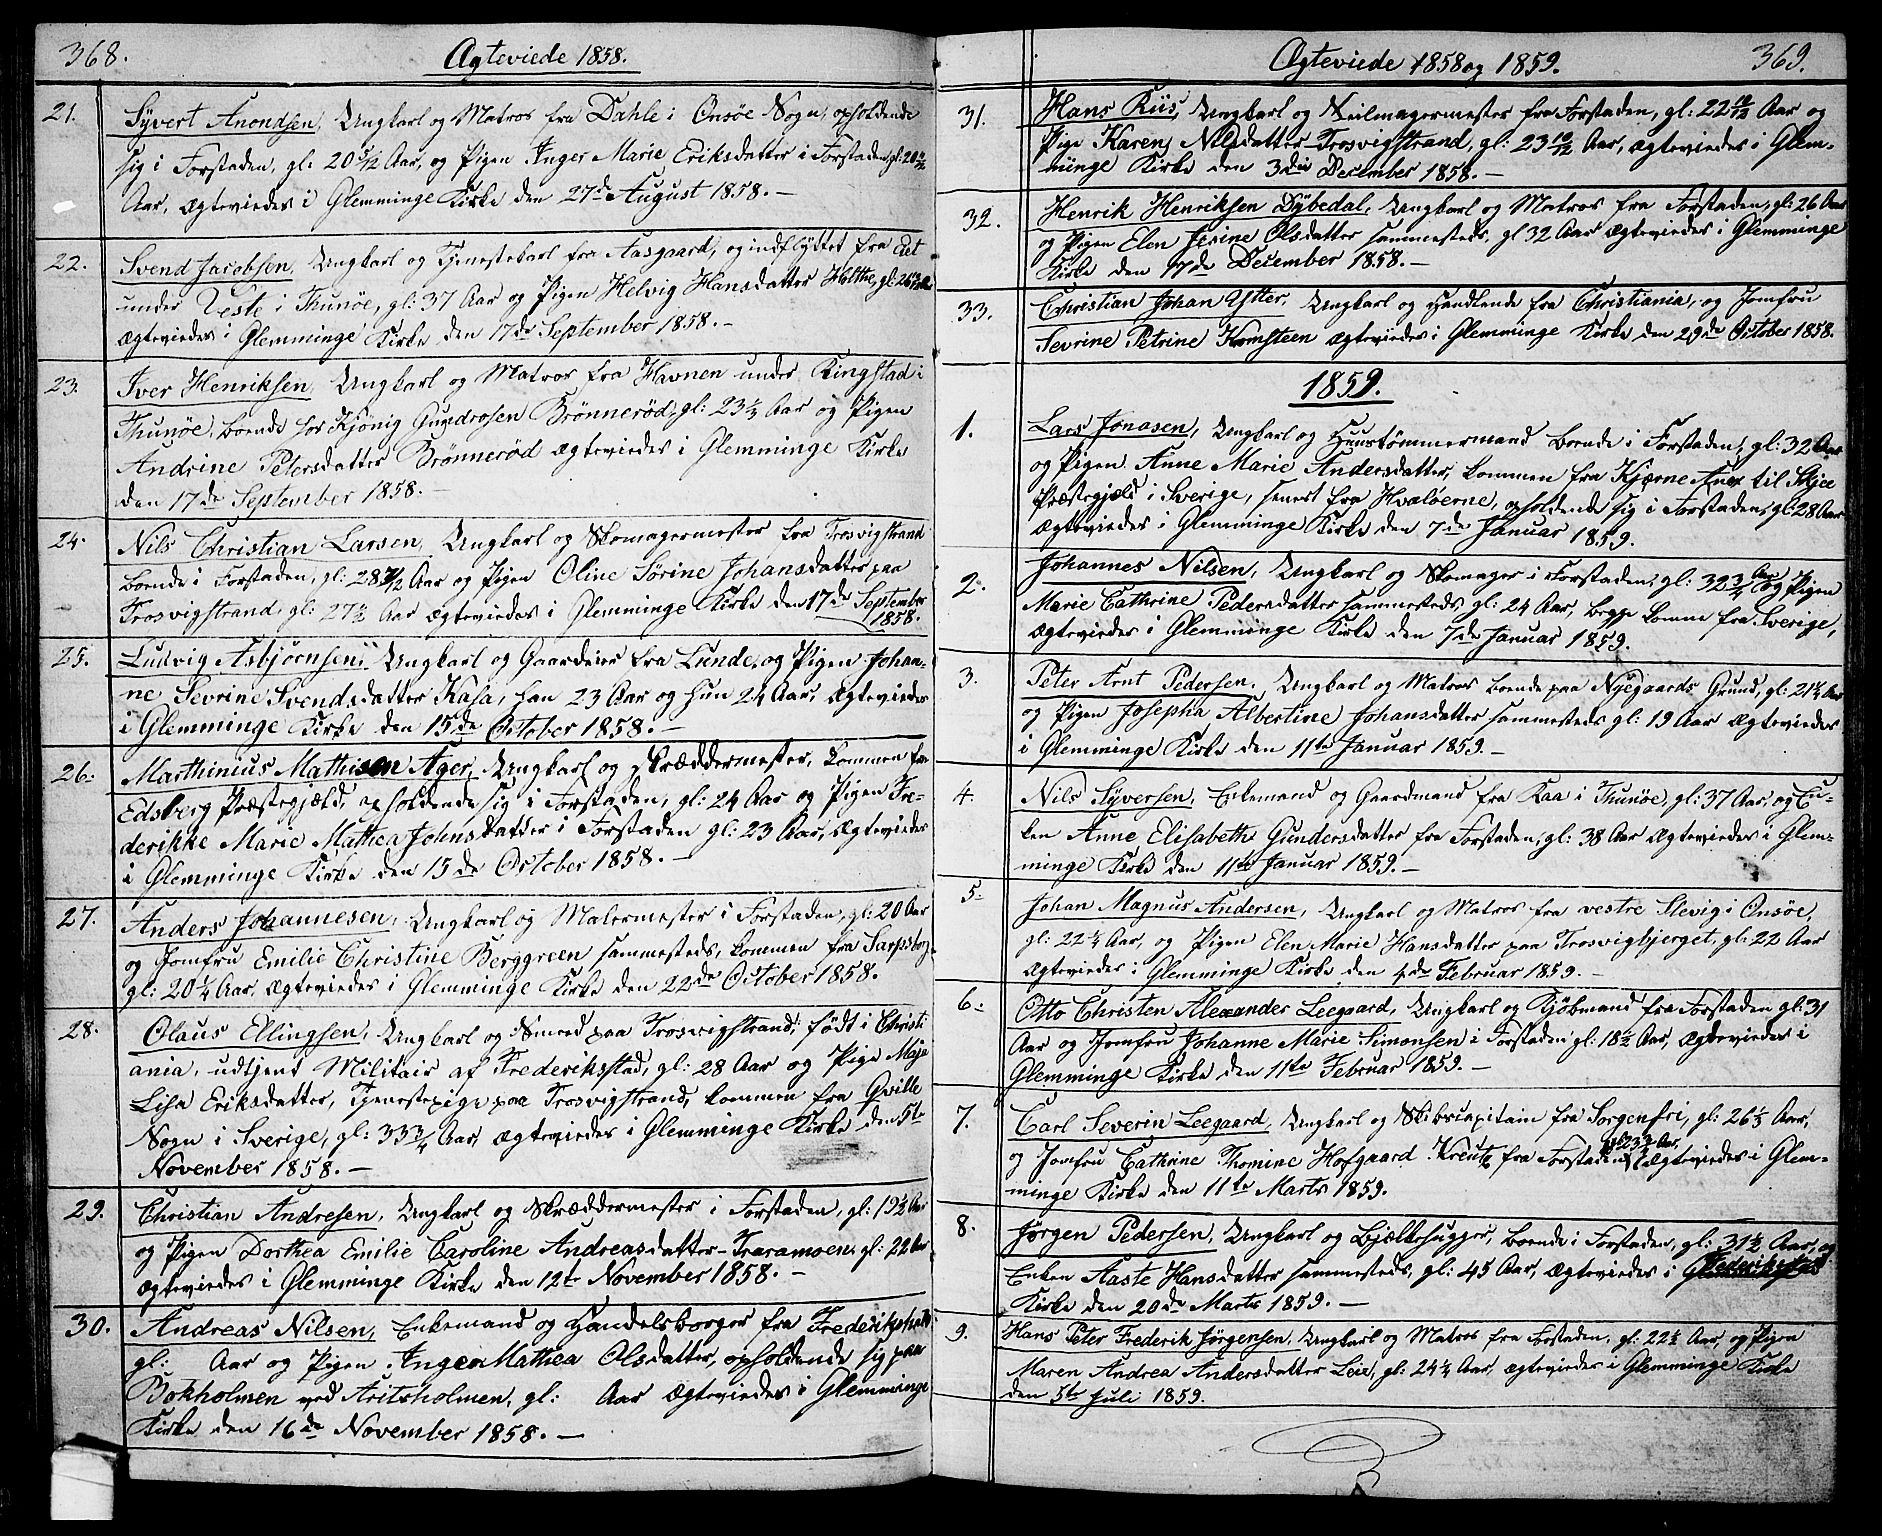 368.
Ægteviede 1858.
21. Syvert Anondsen, Ungkarl og Matros fra Dahle i Onsøe Sogn, opholdende
sig i Forstaden, gl: 20 5/12 Aar, og Pigen Inger Marie Eriksdatter i Forstaden, gl: 20
Aar, ægteviedes i Glemminge Kirke den 27de August 1858. —
22. Svend Jacobsen, Ungkarl og Tjenestekarl fra Aasgaard, og indflyttet fra Eiet
under Veste i Thunøe, gl: 37 Aar og Pigen Helvig Hansdatter Holthe, gl: 26
ægteviedes i Glemminge Kirke den 17de September 1858. —
23. Iver Henriksen, Ungkarl og Matros fra Havnen under Ringstad i
Thunøe, boende hos Kjønig Gundrosen Brønnerød, gl: 23 1/3 Aar og Pigen
Andrine Petersdatter Brønnerød ægteviedes i Glemminge Kirke
den 17de September 1858. —
24. Nils Christian Larsen, Ungkarl og Skomagermester fra Trosvigstrand
boende i Forstaden, gl: 28 1/2 Aar og Pigen Oline Sørine Johansdatter paa
Trosvigstrand, gl: 27 1/2 Aar ægteviedes i Glemminge Kirke den 17de September
1858.
25. Ludvig Asbjørnsen, Ungkarl og Gaardeier fra Lunde, og Pigen Johan-
ne Sevrine Svendsdatter Kasa, han 23 Aar og hun 24 Aar, ægteviedes
i Glemminge Kirke den 15de October 1858. —
26. Marthinius Mathisen Ager, Ungkarl og Skræddermester, kommen fra
Edsberg Præstegjæld, opholdende sig i Forstaden, gl: 24 Aar og Pigen Fre-
derikke Marie Mathea Johnsdatter i Forstaden gl: 23 Aar, ægteviedes
i Glemminge Kirke den 15de October 1858. —
27. Anders Johannesen, Ungkarl og Malermester i Forstaden, gl: 20 Aar
og Jomfru Emilie Christine Berggreen sammesteds, kommen fra Sarpsborg
gl: 20 1/4 Aar, ægteviedes i Glemminge Kirke den 22de October 1858.
28. Olaus Ellingsen, Ungkarl og Smed paa Trosvigstrand, født i Christi
ania, udtjent Militair af Frederikstad, gl: 28 Aar og Pige Maja
Lisa Eriksdatter, Tjenestepige paa Trosvigstrand, kommen fra Qville
Sogn i Sverige, gl: 33 3/4 Aar, ægteviedes i Glemminge Kirke den 5te
November 1858. —
29. Christian Andresen, Ungkarl og Skræddermester i Forstaden, gl: 19 1/2 Aar
og Pigen Dorthea Emilie Caroline Andreasdatter Traramoen, gl: 22 Aar
ægteviedes i Glemminge Kirke den 12te November 1858. —
30. Andreas Nilsen, Enkemand og Handelsborger fra Frederikshald
gl: Aar og Pigen Inger Mathea Olsdatter, opholdende sig paa
Bokholmen ved Aritsholmen, gl: Aar ægteviedes i Glemminge
Kirke den 16de November 1858. —
Ægteviede 1858 og 1859.
369.
31. Hans Riis, Ungkarl og Seilmagermester fra Forstaden, gl: 22 10/12 Aar og
Pige Karen Nilsdatter Trosvigstrand, gl: 23 10/12 Aar, ægteviedes i Glem-
minge Kirke den 3die December 1858. —
32. Henrik Henriksen Dybedal, Ungkarl og Matros fra Forstaden, gl: 26 Aar
og Pigen Elen Jesine Olsdatter sammesteds, gl 32 Aar ægteviedes i Glemminge
Kirke den 17de December 1858. —
33. Christian Johan Ytter, Ungkarl og Handlende fra Christiania, og Jomfru
Sevrine Petrine Komsteen ægteviedes i Glemminge Kirke den 29de October 1858.
1859.
1. Lars Jonasen, Ungkarl og Huustømmermand boende i Forstaden, gl: 32 Aar
og Pigen Anne Marie Andersdatter, kommen fra Kjærne Anex til Skjee
Præstegjæld i Sverige, senest fra Hvaløerne, opholdende sig i Forstaden, gl: 28 Aar
ægteviedes i Glemminge Kirke den 7de Januar 1859.
2. Johannes Nilsen, Ungkarl og Skomager i Forstaden, gl: 32 3/4 Aar og Pigen
Marie Cathrine Pedersdatter sammesteds, gl: 24 Aar, begge komne fra Sverige,
ægteviedes i Glemminge Kirke den 7de Januar 1859.
3. Peter Arnt Pedersen, Ungkarl og Matros boende paa Nyegaards Grund, gl: 21 1/2 Aar
og Pigen Josepha Albertine Johansdatter sammesteds gl: 19 Aar ægteviedes
i Glemminge Kirke den 11te Januar 1859. —
4. Nils Syversen, Enkemand og Gaardmand fra Kaa i Thunøe, gl: 37 Aar, og En-
ken Anne Elisabeth Gundersdatter fra Forstaden, gl: 38 Aar ægteviedes i Glem-
minge Kirke den 11te Januar 1859. —
5. Johan Magnus Andersen, Ungkarl og Matros fra vestre Slevig i Onsøe,
gl: 22 1/4 Aar, og Pigen Elen Marie Hansdatter paa Trosvigbjerget, gl: 22 Aar
ægteviedes i Glemminge Kirke den 4de Februar 1859. —
6. Otto Christen Alexander Leegaard, Ungkarl og Kjøbmand fra Forstaden gl: 31
Aar og Jomfru Johanne Marie Simonsen i Forstaden gl: 18 1/2 Aar, ægteviedes i
Glemminge Kirke den 11te Februar 1859. —
7. Carl Severin Leegaard, Ungkarl og Skibscapitain fra Sorgenfri, gl: 26 1/3 Aar,
og Jomfru Cathrine Thomine Hofgaard Kreutz fra Forstaden, gl: 23 3/4 Aar, ægteviedes i Glem-
minge Kirke den 11te Marts 1859.
8. Jørgen Pedersen, Ungkarl og Bjælkhugger, boende i Forstaden, gl: 31 1/2 Aar, og
Enken Aaste Hansdatter sammesteds, gl: 45 Aar, ægteviedes i Frederikstad
Kirke den 20de Marts 1859. —
9. Hans Peter Frederik Jørgensen, Ungkarl og Matros fra Forstaden, gl: 22 1/2 Aar, og Pigen
Maren Andrea Andersdatter Leie, gl: 24 1/4 Aar, ægteviedes i Glemminge Kirke
den 5te Juli 1859.